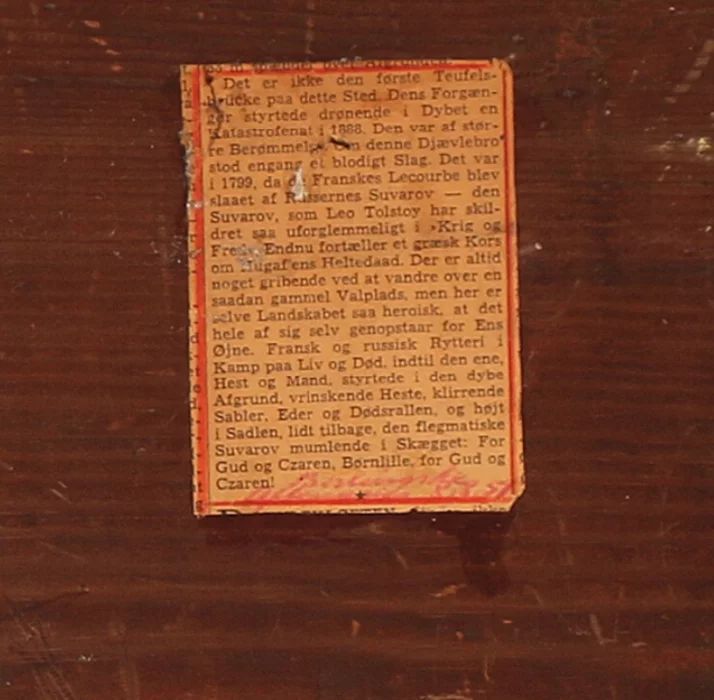 Det er ikke den første Teufels-
brücke paa dette Sted. Dens Forgæn-
ger styrtede drønende i Dybet en
Katastrofenat i 1888. Den var af stør-
re Berømmelse. Om denne Djævlebro
stod engang et blodigt Slag. Det var
i 1799, da de Franskes Lecourbe blev
slaaet af Russernes Suvarov — den
Suvarov, som Leo Tolstoy har skil-
dret saa uforglemmeligt i »Krig og
Fred«. Endnu fortæller et græsk Kors
om Heltedaad. Der er altid
noget gribende ved at vandre over en
saadan gammel Valplads, men her er
selve Landskabet saa heroisk, at det
hele af sig selv genopstaar for Ens
Øjne. Fransk og russisk Rytteri i
Kamp paa Liv og Død, indtil den ene,
Hest og Mand, styrtede i den dybe
Afgrund, vrinskende Heste, klirrende
Sabler, Eder og Dødsrallen, og højt
i Sadlen, lidt tilbage, den flegmatiske
Suvarov mumlende i Skægget: For
Gud og Czaren, Børnlille, for Gud og
Czaren!